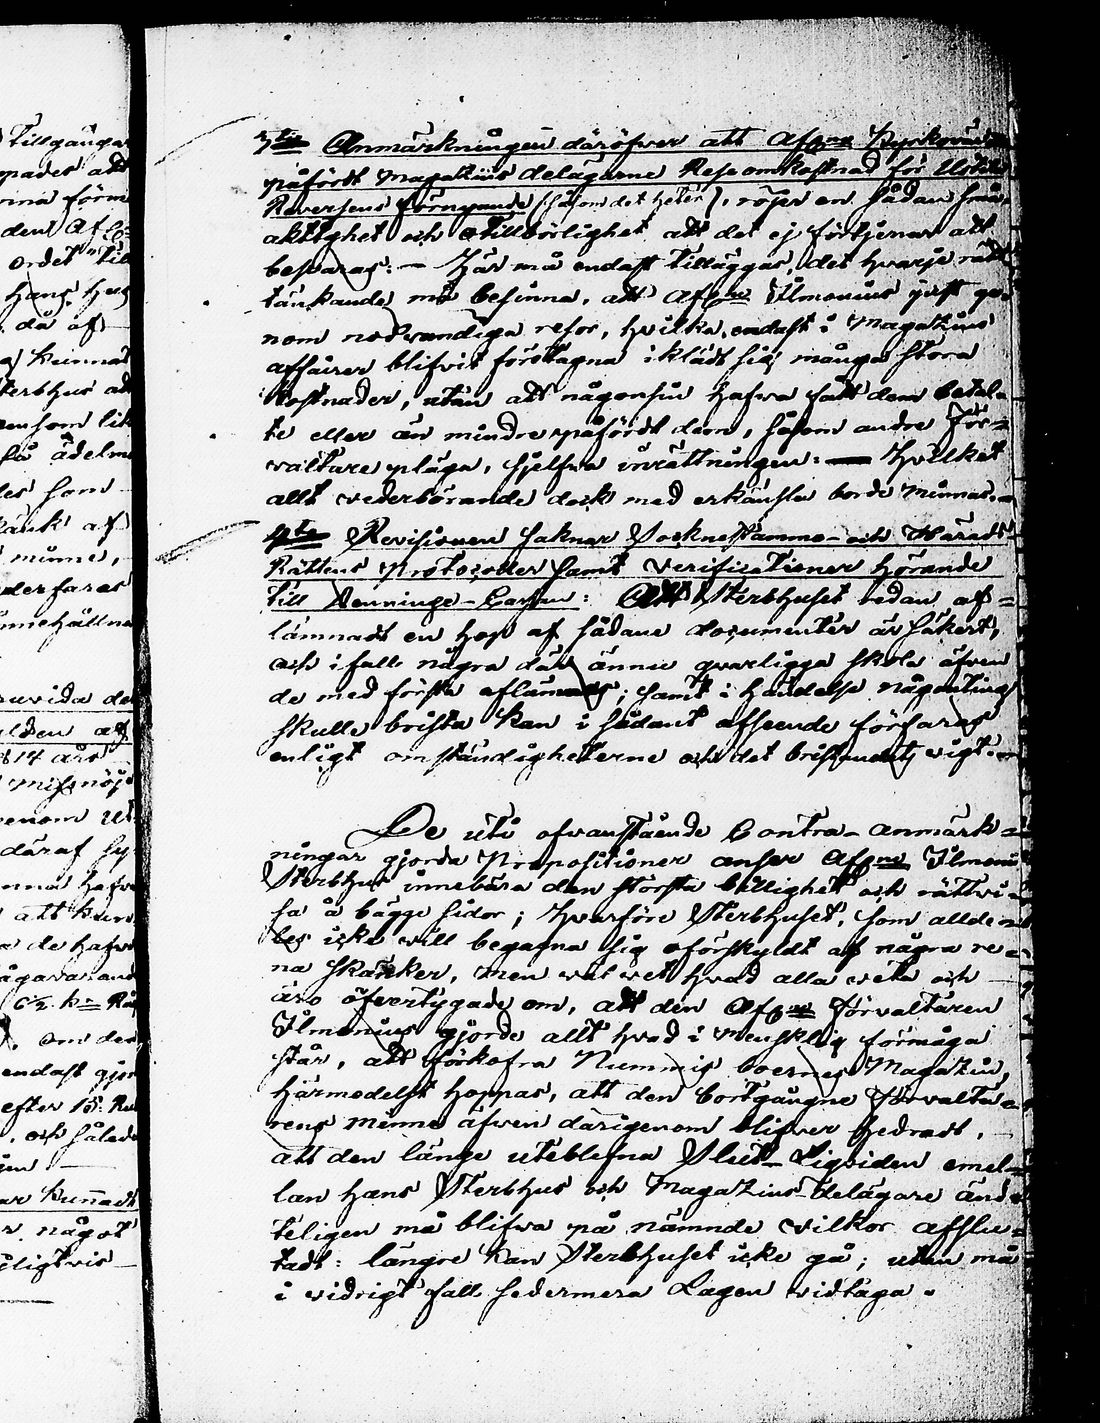 Tillgångar
pades att
rina förm
den Afl
ordet "till
Hans
då af
terbhus
som
få ädelm
som
af
minne,
derfaras
innehållna
uvida de
14 års
missnöje
genom
däraf
att kun
a de hafva
om den
endast gjor
efter 15
och således
kunnat
något
eligtvis
3tie Anmärkningen däröfver att Afledne Kyrkovär
påfördt Magazins delägarne Rese omkostnad för
Reversens förnyande (såsom det heter), röjer en sådan små=
aktighet och otillbörlighet att det ej förtjenar att
besvaras: — Här må endast tilläggas, det hvarje rätt
tänkande må besinna, att Afledne Ilmonius just ge=
nom nödvändiga resor, hvilka endast i Magazins
affairer blifvit företagna iklädt sig många stora
kostnader, utan att någonsin hafva fått dem betal=
te eller än mindre påfördt dem, såsom andre För=
valtare pläga, sjelfva inrättningen: — Hvilket
allt vederbörande dock med erkänsla borde minnas.
4to Revisionen saknar Socknestämmo- och Härads=
Rättens Protocoller samt verificationer hörande
till Denninge-Cassan: Att Sterbhuset redan af=
lämnadt en hop af sådane documenter är säkert,
och ifall några där ännu qvarligga skola äfven
de med första aflämnas; samt i händelse någonting
skulle brista kan i sådant afseende förfaras
enligt omständigheterne och det bristandes vigt.
De uti ofvanstående Contra-anmärk=
ningar gjorda Propositioner anser Afledne Ilmonii
Sterbhus innebära den största billighet och rättvi=
sa å bägge sidor; hvarföre Sterbhuset, som allde=
les icke vill begagna sig oförskyldt af några re=
na skänker, men väl vet hvad alla veta och
äro öfvertygade om, att den Afledne Förvaltaren
Ilmonius gjorde allt hvad i mensklig förmåga
står, att förkofra Nummis boernes Magazin,
härmedelst hoppas, att den bortgångne Förvalta=
rens minne äfven därigenom blifver hedradt,
att den länge uteblefna Slut-Liqviden emel=
lan hans Sterbhus och Magazins-delägare änd=
teligen må blifva på nämnde vilkor afslu=
tadt: längre kan Sterbhuset icke gå; utan må
i vidrigt fall sedermera Lagen vidtaga.